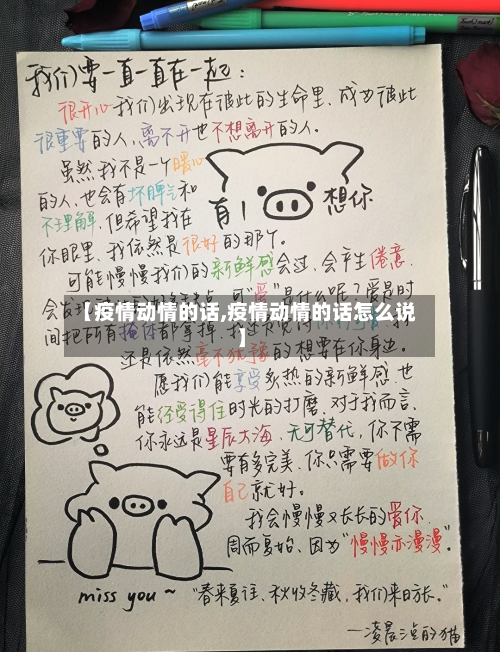 我们要一直一直在一起:
很开心我们出现在彼此的生命里,成为彼此
很重要的人,离不开也不想离开的人。
虽然我不是一个暖心
的人,也会有坏脾气和
不理解,但希望我在
你眼里,我依然是很好的那个。
有1
想你
可能慢慢我们的新鲜感会过,会产生倦意,
【疫情动情的话,疫情动情的话怎么说
】
间把所有掩体都拿掉,我还
还是依然毫不犹豫的想要在你身边。
愿我们能享受炙热的新鲜感也
能经受得住时光的打磨.对于我而言,
你永远是星辰大海,无可替代,你不需
要有多完美,你只需要做你
自己就好。
我会慢慢又长长的爱你,
周而复始,因为“慢慢亦漫漫”。
miss you ~
“春来夏往、秋收冬藏,我们来日方长。”
—凌晨 的猫